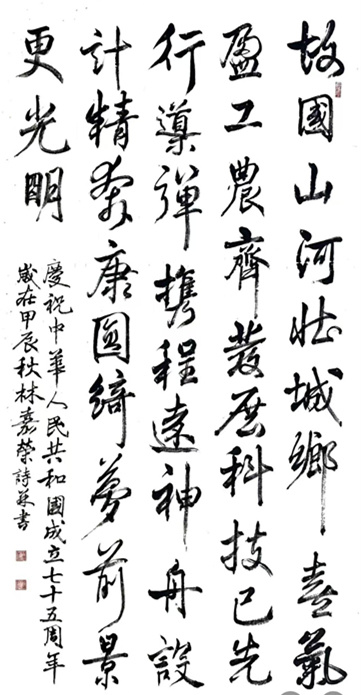 故國山河壯城鄉喜氣
盈工農齊發展科技已先
行導彈携程遠神舟設
計精奔康圓綺夢前景
更光明
慶祝中華人民共和國成立七十五周年
歲在甲辰秋林嘉榮詩并書